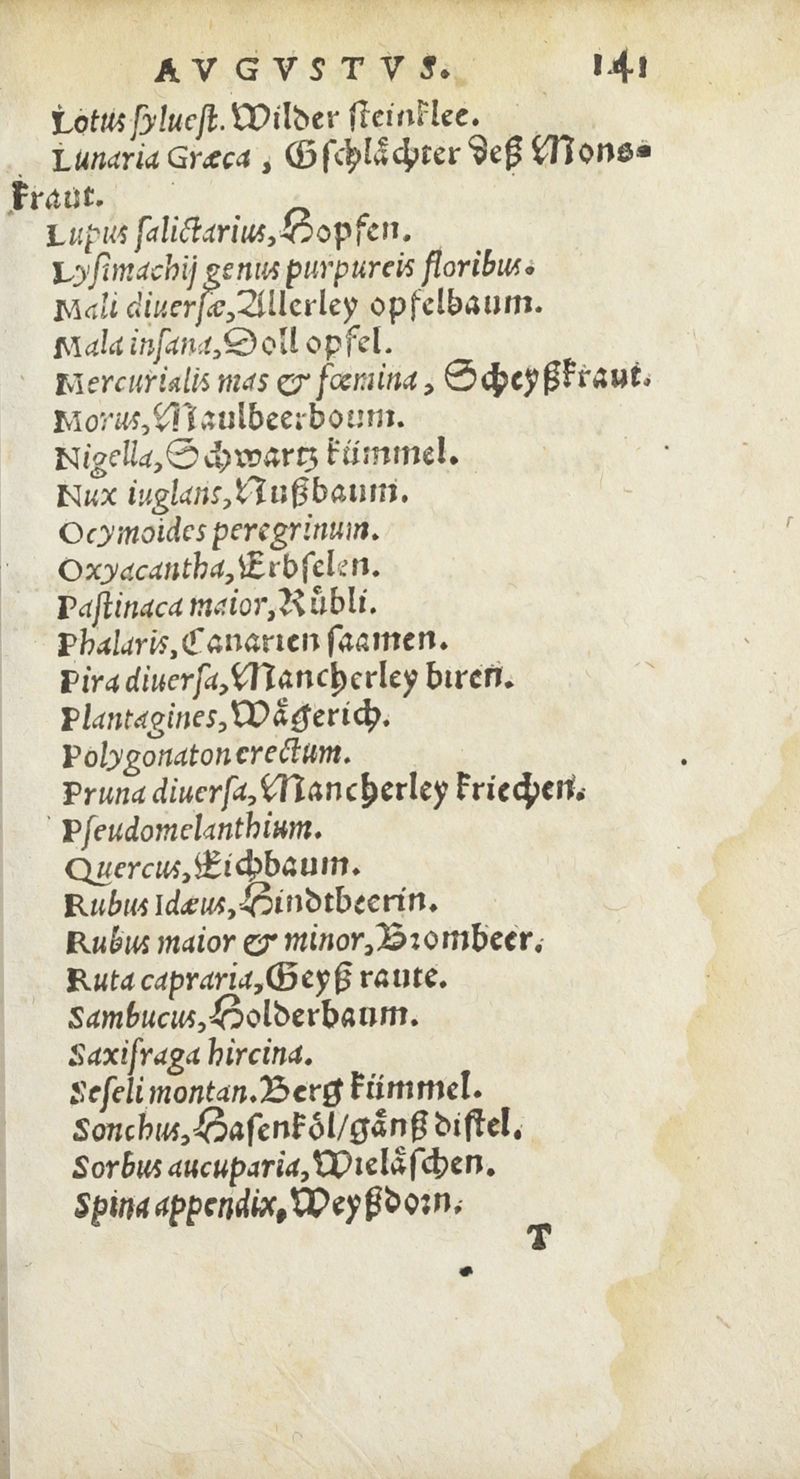 AVGVSTVS. 141
Lotus syluest. Wilder steinklee.
Lunaria Græca, Gschlächter deß Mons-
kraut.
Lupus salictarius, Hopfen.
Lysimachij genus purpureis floribus.
Mali diuersæ, Allerley opfelbaum.
Mala insana, Doll opfel.
Mercurialis mas & fœmina, Scheyßkraut.
Morus, Maulbeerboum.
Nigella, Schwartz kümmel.
Nux iuglans, Nußbaum.
Ocymoides peregrinum.
Oxyacantha, Erbselen.
Pastinaca maior, Rübli.
Phalaris, Canarien saamen.
Pira diuersa, Mancherley biren.
Plantagines, Wägerich.
Polygonaton erectum.
Pruna diuersa, Mancherley kriechen.
Pseudomelanthium.
Quercus, Eichbaum.
Rubus Idæus, Hindtbeerin.
Rubus maior & minor, Brombeer.
Ruta capraria, Geyß raute.
Sambucus, Holderbaum.
Saxifraga hircina.
Seseli montan. Berg kümmel.
Sonchus, Hasenköl/gänß distel.
Sorbus aucuparia, Wieläschen.
Spina appendix, Weyßdorn.
T